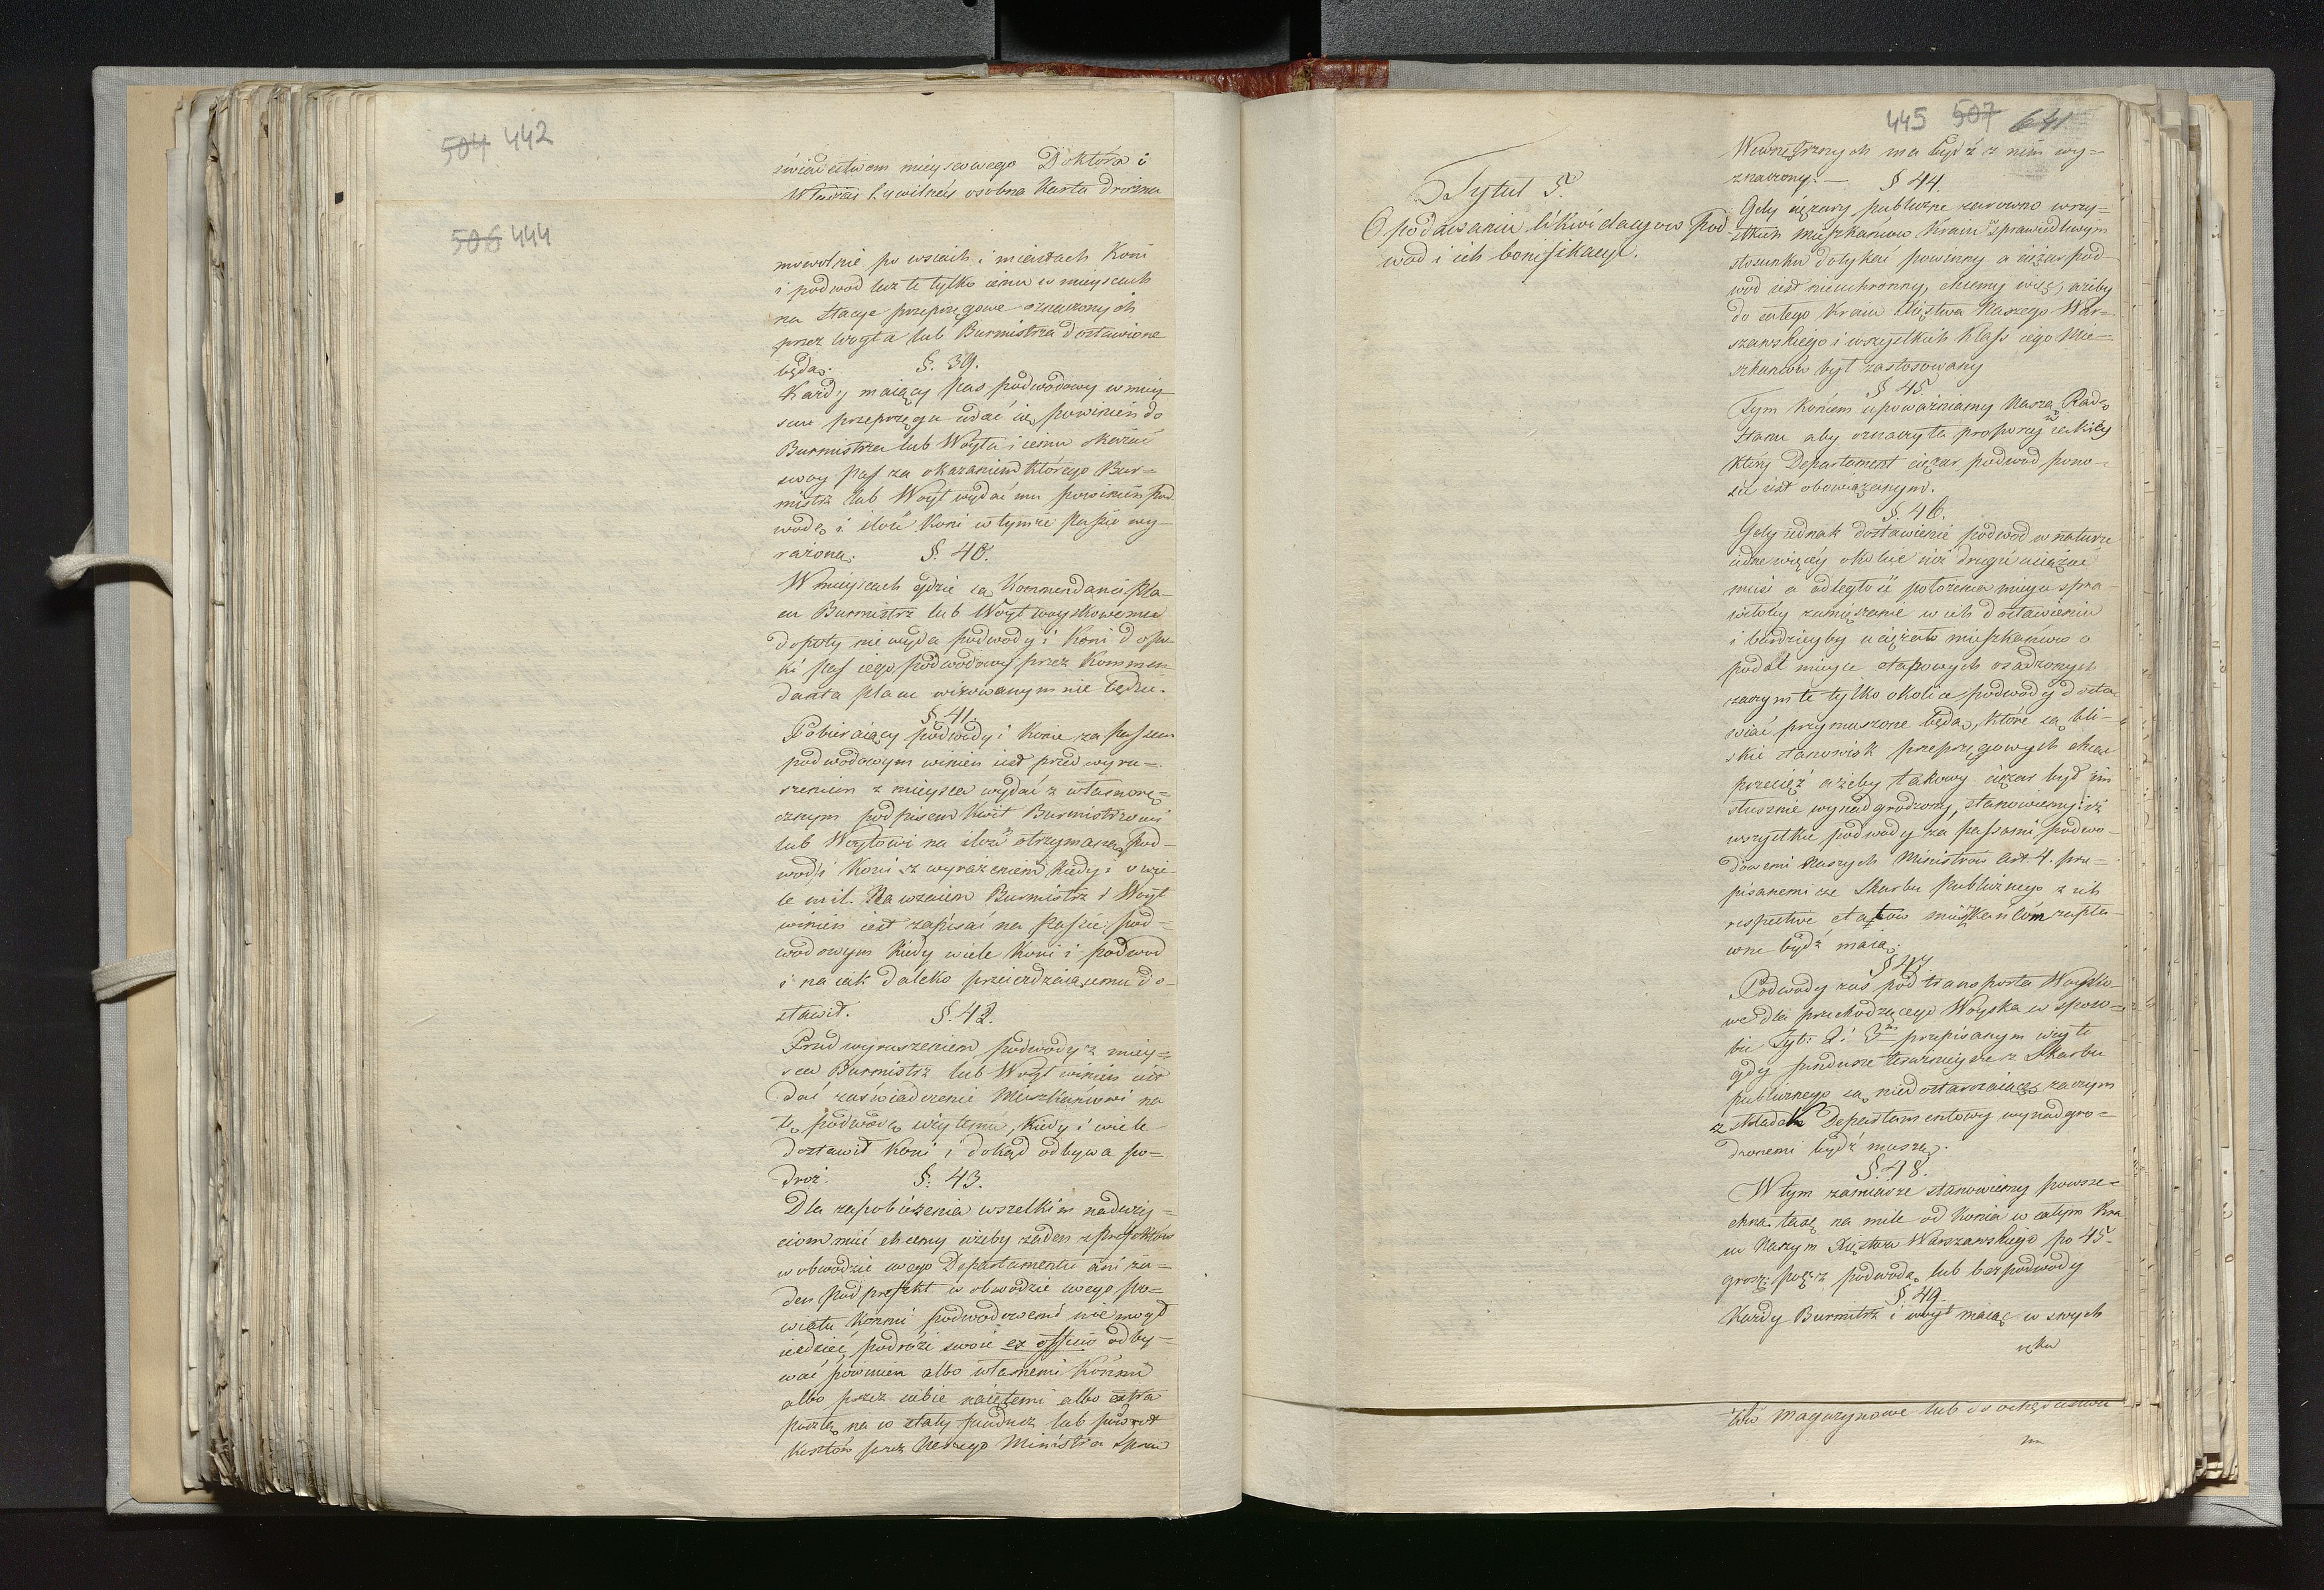 504 442
świadectwem mieyscowego Doktora i
Władzy Cywilney osobna Karta drożna
506 444
mowolnie po wsiach i miastach Koni
i podwod lecz te tylko iemu w mieyscach
na stacye przeprzęgowe oznaczonych
przez Woyta lub Burmistrza dostawione
będą. §. 39.
Każdy maiący Pas podwodowy w miey
scu przeprzęgu udać się powinien do
Burmistrza lub Woyta i iemu okazać
swoy Pas za okazaniem którego Bur=
mistrz lub Woyt wydać mu powinien pod
wodę i ilość Koni w tymże Pasie wy-
rażoną. §. 40.
W mieyscach gdzie są Kommendanci Pla-
cu Burmistrz lub Woyt woyskowemu
dopóty nie wyda podwody i Koni dopó-
ki pas iego podwodowy przez Kommen
danta placu wizowanym nie będzie.
§. 41.
Pobieraiący podwody i Konie za passem
podwodowym winien iest przed wyru=
szeniem z mieysca wydać z własnorę=
cznym podpisem Kwit Burmistrzowi
lub Woytowi na ilość otrzymaną pod-
wod i Koni z wyrażeniem Kiedy i o wie-
le mil. Nawzaiem Burmistrz i Woyt
winien iest zapisać na Pasie pod=
wodowym Kiedy wiele Koni i podwod
i na iak daleko przeieżdżaiącemu do-
stawił. §. 42.
Przed wyruszeniem podwody z miey=
sca Burmistrz lub Woyt winien iest
dać zaświadczenie Mieszkańcowi na
tę podwodę użytemu, Kiedy i wiele
dostawił Koni i dokąd odbywa po=
droż. §. 43.
Dla zapobieżenia wszelkim naduży=
ciom mieć chcemy ażeby żaden z prefektow
w obwodzie swego Departamentu ani ża=
den podprefekt w obwodzie swego po=
wiatu Końmi podwodowemi nie mogł
iezdzieć podróże swoie ex officio odby-
wać powinien albo własnemi Końmi
albo przez siebie naiętemi albo extra
pocztą na co stały fundusz lub powrot
kosztów przez Naszego Ministra Spraw
445 507 641
Wewnętrznych ma bydź z nim wy=
znaczony.— § 44.
Tytuł 5.
O podawaniu likwidacyow pod
wod i ich bonifikacyi.
Gdy ciężary publiczne zarowno wszy=
stkich mieszkańców Kraiu w sprawiedliwym
stosunku dotykać powinny a ciężar pod
wod iest nieuchronny, chcemy więc, ażeby
do całego Kraiu Xięstwa Naszego War=
szawskiego i wszystkich Klass iego Mie-
szkańców był zastosowany
§ 45.
Tym końcem upoważniamy Naszą Radę
Stanu aby oznaczyła proporcyę w iakiey
który Departament ciężar podwod pono-
sić iest obowiązanym.
§. 46.
Gdy iednak dostawienie podwod w naturze
iedne więcey okolice niż drugie uciążać
musi a odległość położenia mieysc spra-
wiłoby zamieszanie w ich dostawieniu
i bardzieyby uciążało mieszkańców o
podal mieysc etapowych osadzonych
zaczym te tylko okolice podwody dosta
wiać przymuszone będą, które są bli-
skie stanowisk przeprzęgowych chcąc
przecież ażeby takowy ciężar był im
słusznie wynadgrodzony, stanowiemy iż
wszystkie podwody za passami podwo-
dowemi Naszych Ministrow Art. 4. prze=
pisanemi ze Skarbu Publicznego z ich
respective etatow mieszkańcom zapła-
cone bydź maią.
§ 47
Podwody zaś pod transporta Woysko-
we dla przechodzącego Woyska w sposo=
bie Tyt: 2. i 3m przepisanym wzięte
gdy fundusze teraźnieysze z Skarbu
publicznego są niedostarczaiące, zaczym
z składek Departamentowy wynadgro=
dzonemi bydź muszą.
§. 48.
W tym zamiarze stanowiemy powsze=
chną taxę na milę od Konia w całym Kra
iu Naszym Xięstwa Warszawskiego po 45.
groszy pol: z podwodą lub bez podwody
§. 49.
Każdy Burmistrz i woyt maiąc w swych
ręku
magazynowe lub